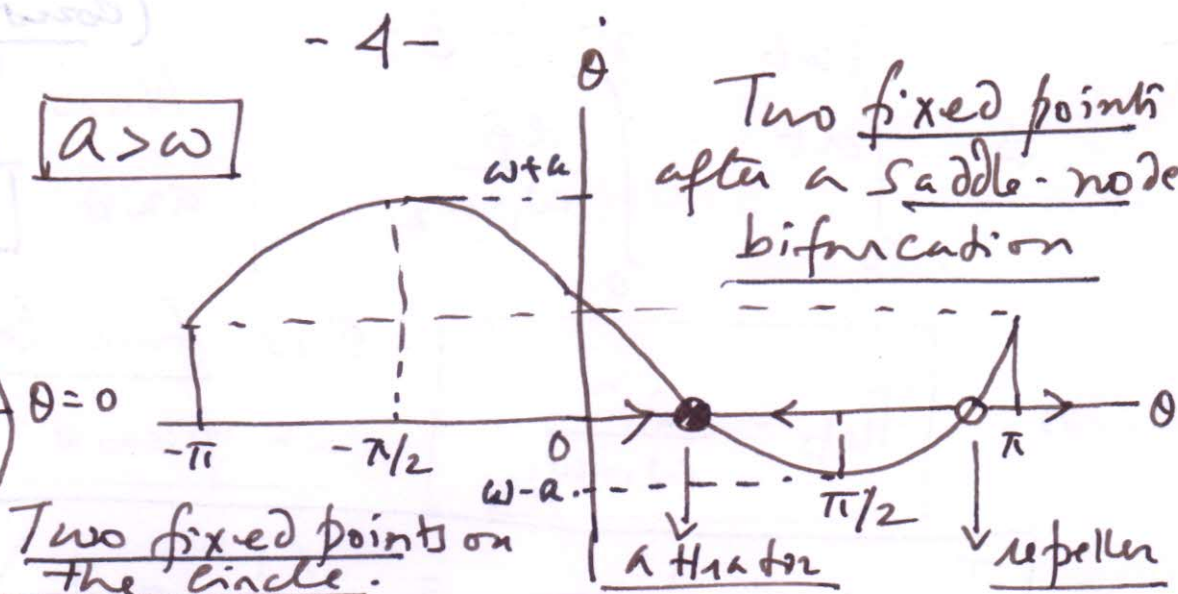 - 4 -
a > ω
θ̇
Two fixed points
after a saddle-node
bifurcation
ω+a
θ = 0
-π
-π/2
0
π/2
π
θ
ω-a
Two fixed points on
the circle.
attractor
repeller